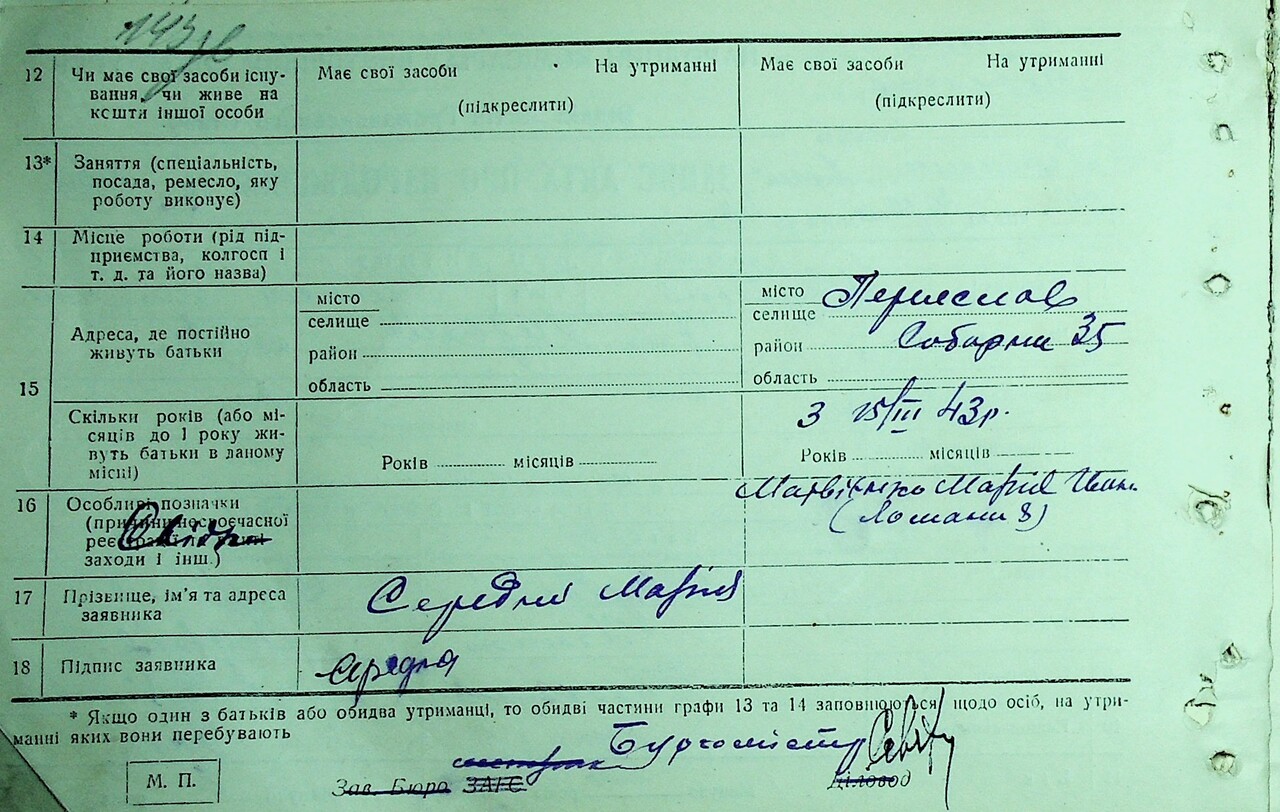 12 Чи має свої засоби існу-
вання, чи живе на
кошти іншої особи
Має свої засоби На утриманні
(підкреслити)
Має свої засоби На утриманні
(підкреслити)
13* Заняття (спеціальність,
посада, ремесло, яку
роботу виконує)
14 Місце роботи (рід під-
приємства, колгосп і
т. д. та його назва)
15 Адреса, де постійно
живуть батьки
місто
селище
район
область
місто Переяслав
селище
район Соборна 35
область
Скільки років (або мі-
сяців до 1 року жи-
вуть батьки в даному
місці)
Років місяців
З 15/III 43 р.
Років місяців
16 Особливі позначки
(причини несвоєчасної
заходи і інш.)
Марія
17 Прізвище, ім'я та адреса
заявника
Середня Марія
18 Підпис заявника
Середня
* Якщо один з батьків або обидва утриманці, то обидві частини графи 13 та 14 заповнюються щодо осіб, на утри-
манні яких вони перебувають
Бургомістр
М. П.
Зав. Бюро ЗАГС
Діловод